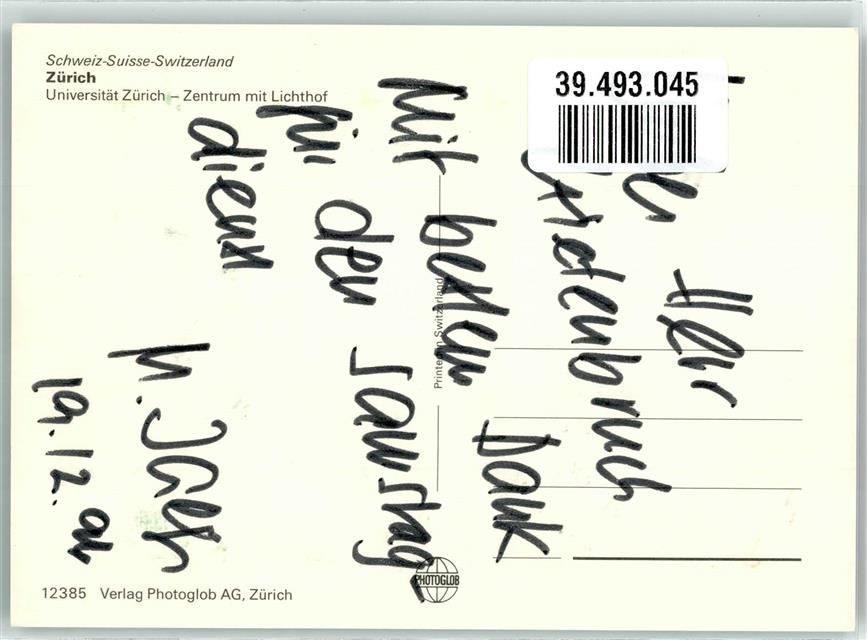 Schweiz-Suisse-Switzerland
Zürich
Universität Zürich – Zentrum mit Lichthof
39.493.045
Herr
Mit besten Dank
für den Samstag
dienst
19.12.
Printed in Switzerland
PHOTOGLOB
12385 Verlag Photoglob AG, Zürich